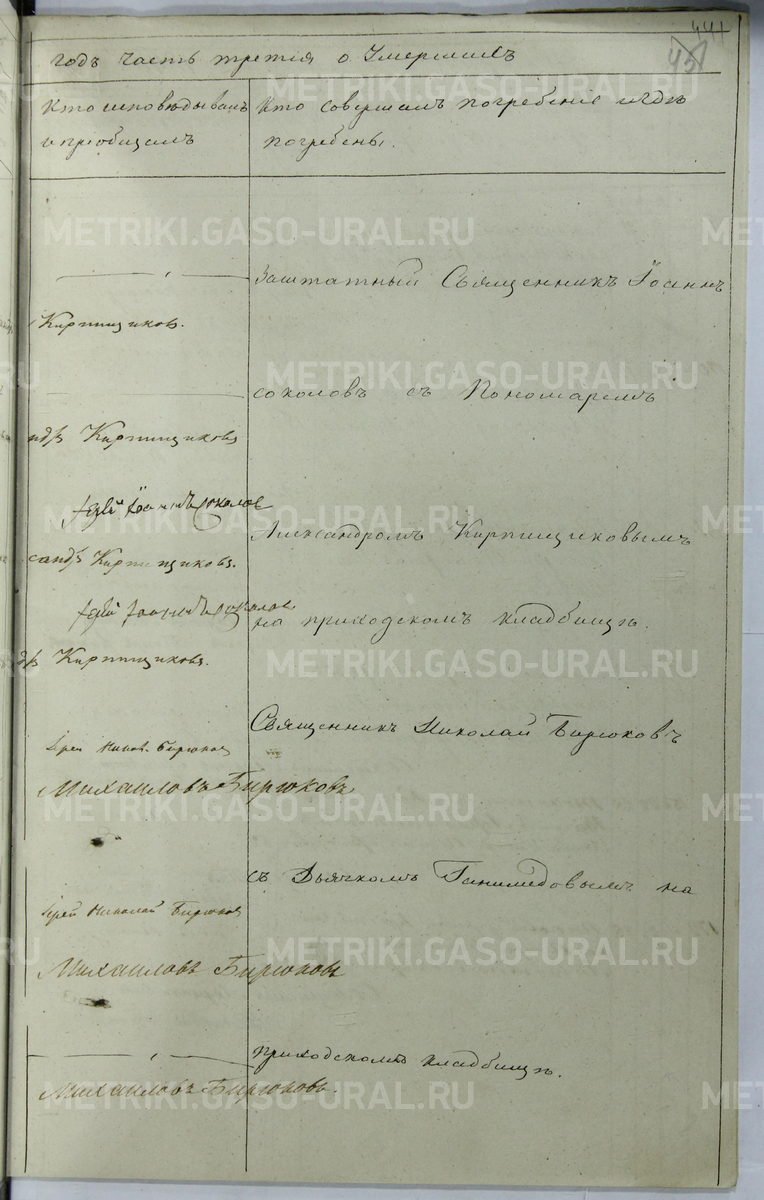 441
годъ часть третія о Умершихъ
Кто исповѣдывалъ
и пріобщалъ
Кто совершалъ погребеніе и гдѣ
погребены.
Заштатный Священникъ Іоаннъ
Кирпищиковъ.
Соколовъ съ Пономаремъ
Кирпищиковъ
Іерей Іоаннъ Соколовъ
Александромъ Кирпищиковымъ
Кирпищиковъ.
Іерей Іоаннъ Соколовъ
на приходскомъ кладбищѣ.
Кирпищиковъ.
Священникъ Николай Бирюковъ
Іерей Никол. Бирюковъ
Михаиловъ Бирюковъ
съ Дьячкомъ Ганимедовымъ на
Іерей Николай Бирюковъ
Михаиловъ Бирюковъ
приходскомъ кладбищѣ.
Михаиловъ Бирюковъ.
METRIKI.GASO-URAL.RU